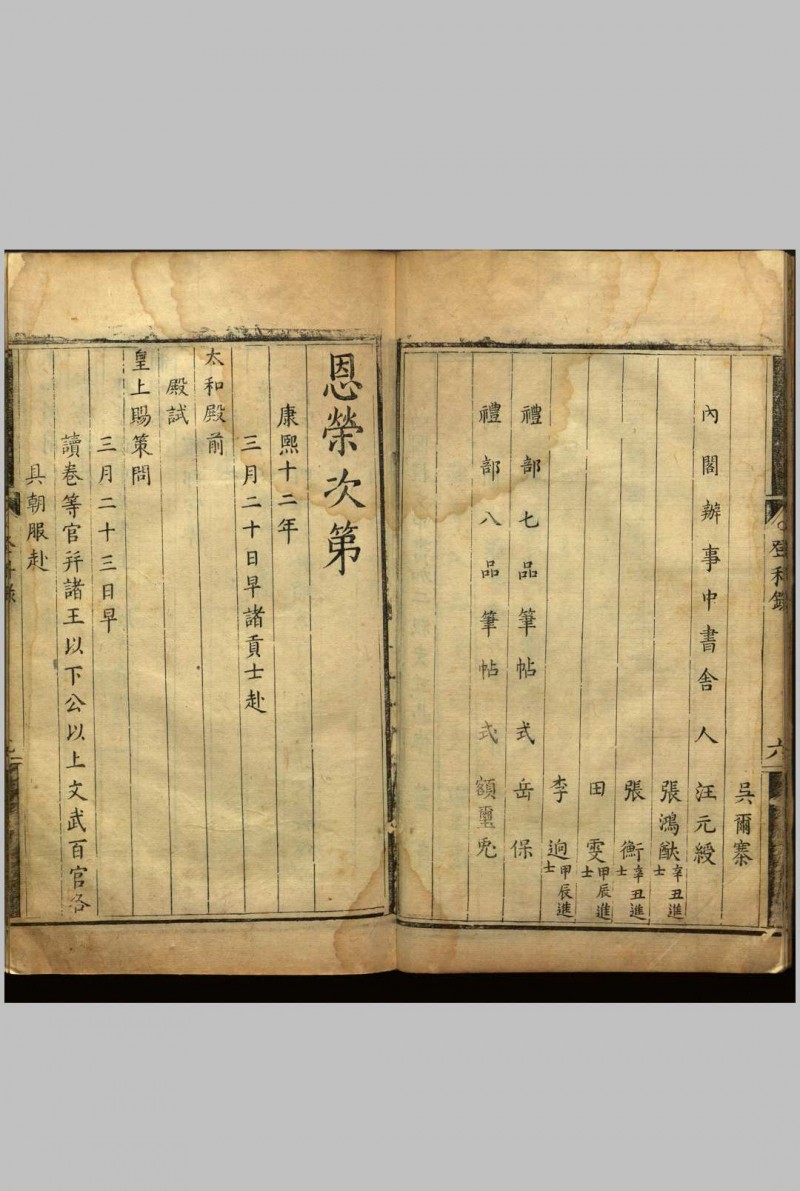 登科錄
六
吳爾寨
內閣辦事中書舍人汪元綬
張鴻猷辛丑進士
張衡辛丑進士
田雯甲辰進士
李迥甲辰進士
禮部七品筆帖式岳保
禮部八品筆帖式額璽兎
恩榮次第
康熙十二年
三月二十日早諸貢士赴
太和殿前
殿試
皇上賜策問
三月二十三日早
讀卷等官幷諸王以下公以上文武百官各
具朝服赴